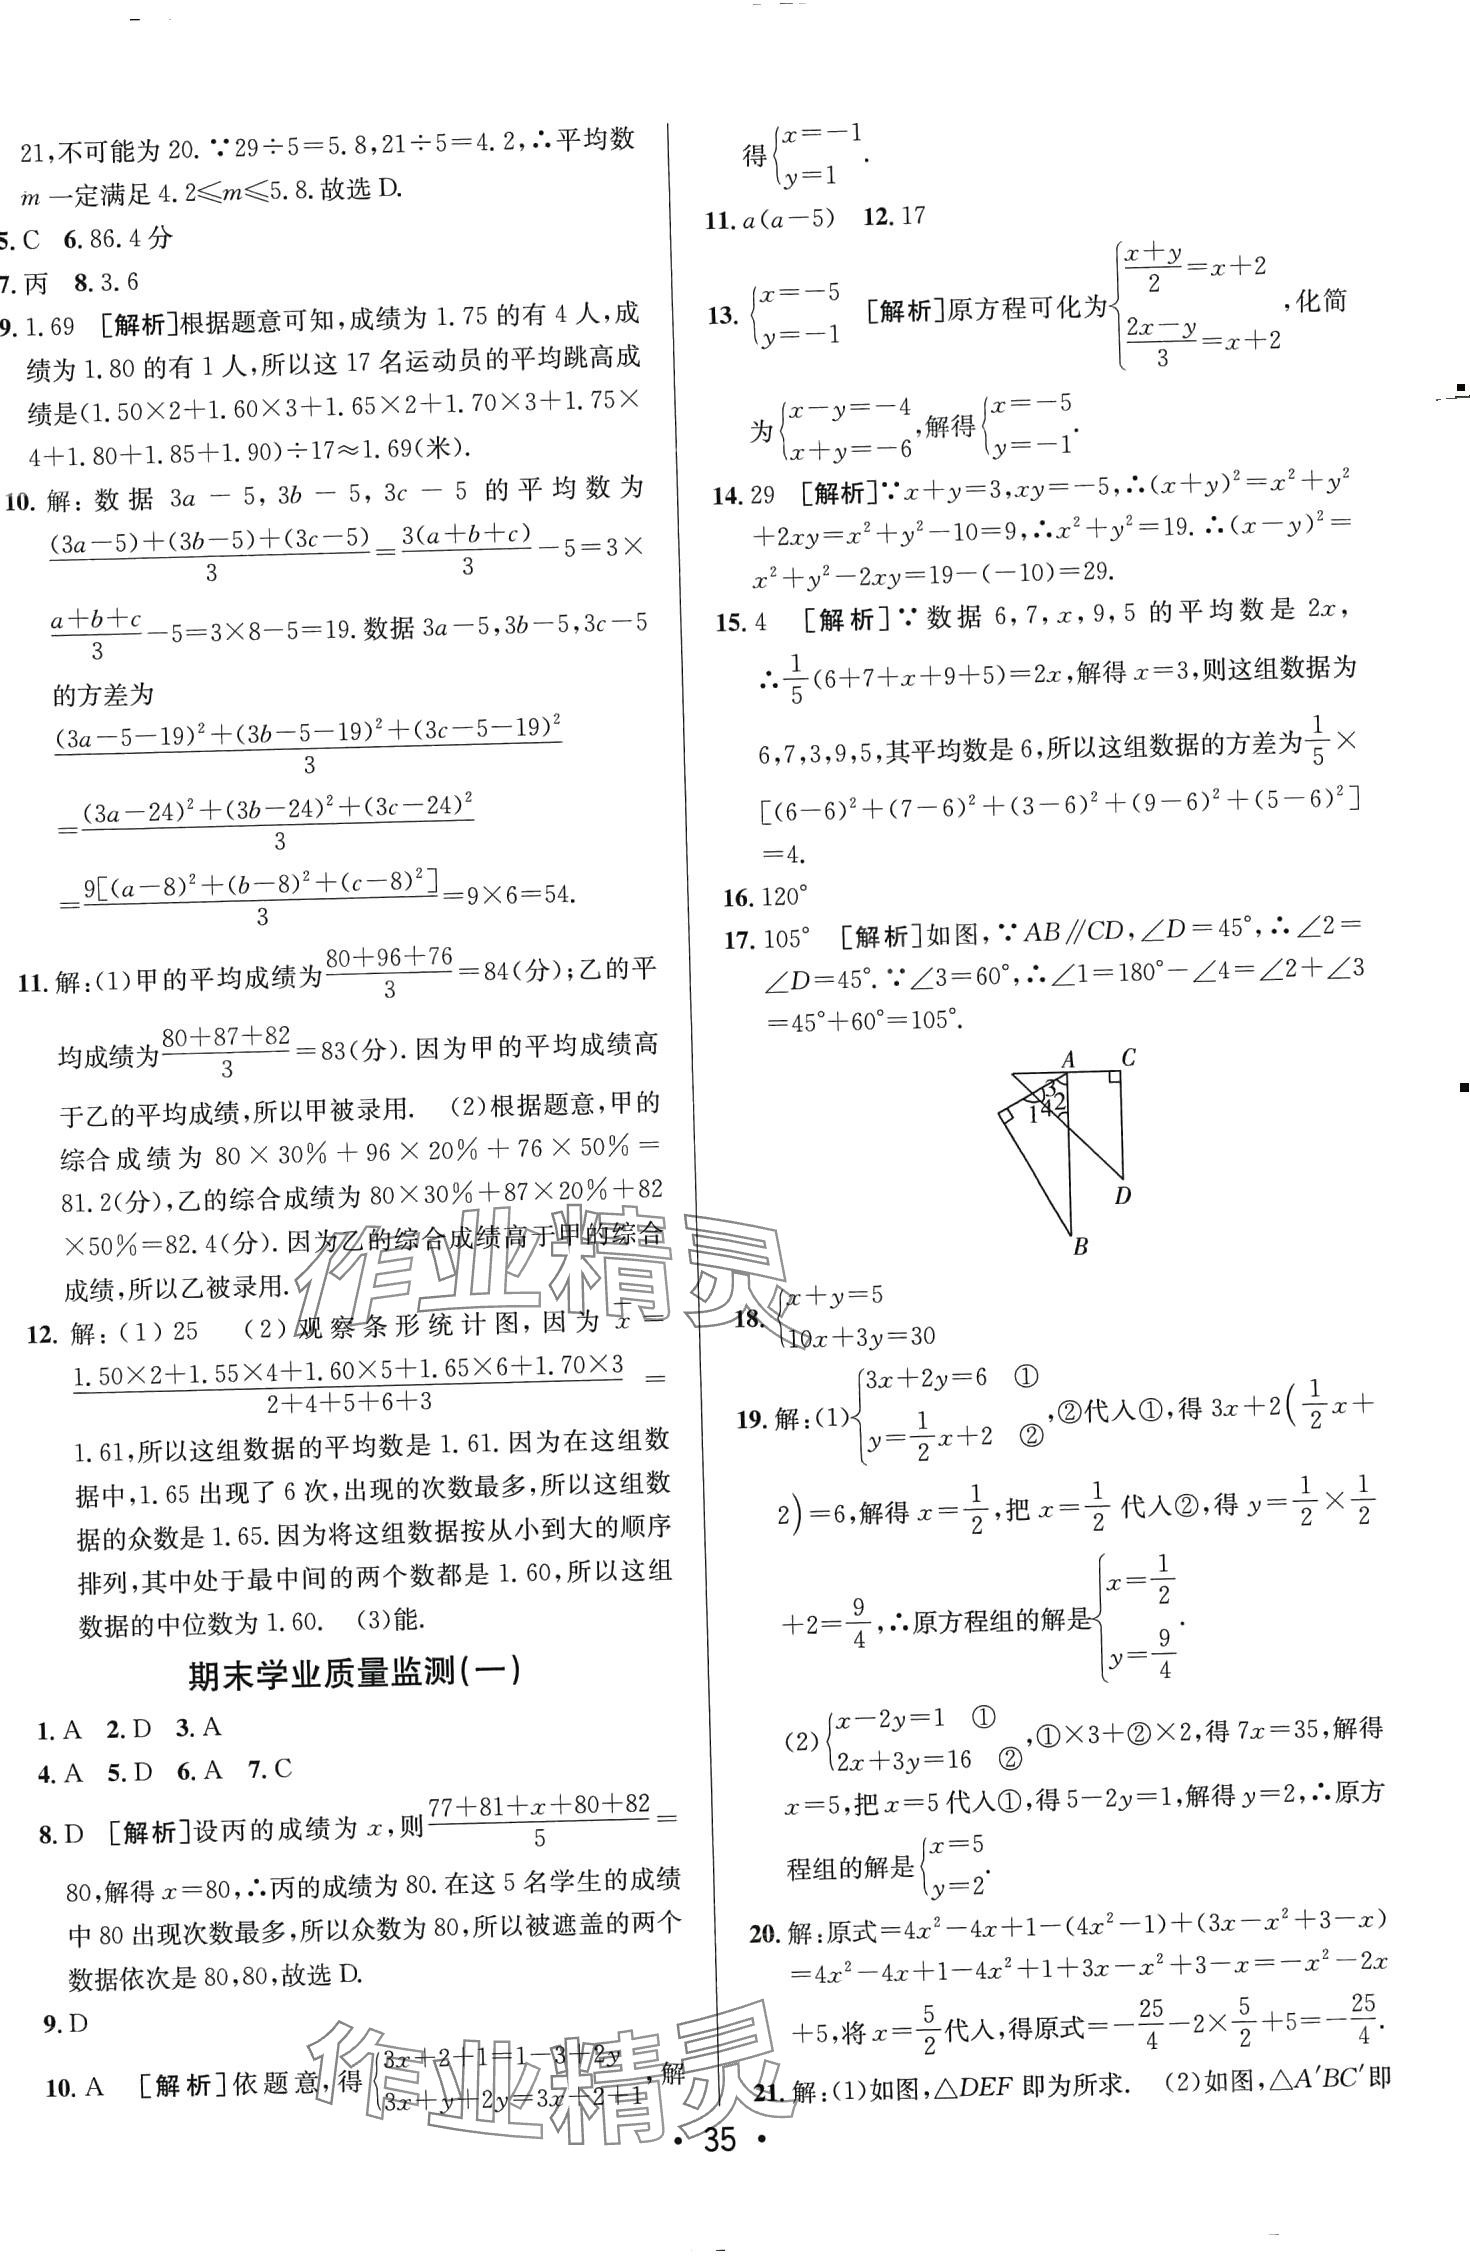 21,不可能为 20. ∵29÷5=5.8,21÷5=4.2,∴平均数
m 一定满足 4.2≤m≤5.8.故选 D.
5. C 6. 86.4 分
7. 丙 8. 3.6
9. 1.69 [解析]根据题意可知,成绩为 1.75 的有 4 人,成
绩为 1.80 的有 1 人,所以这 17 名运动员的平均跳高成
绩是(1.50×2+1.60×3+1.65×2+1.70×3+1.75×
4+1.80+1.85+1.90)÷17≈1.69(米).
10. 解:数据 3a-5,3b-5,3c-5 的平均数为
\frac{(3a-5)+(3b-5)+(3c-5)}{3}=\frac{3(a+b+c)}{3}-5=3×
\frac{a+b+c}{3}-5=3×8-5=19.数据 3a-5,3b-5,3c-5
的方差为
\frac{(3a-5-19)²+(3b-5-19)²+(3c-5-19)²}{3}
=\frac{(3a-24)²+(3b-24)²+(3c-24)²}{3}
=\frac{9[(a-8)²+(b-8)²+(c-8)²]}{3}=9×6=54.
11. 解:(1)甲的平均成绩为\frac{80+96+76}{3}=84(分);乙的平
均成绩为\frac{80+87+82}{3}=83(分).因为甲的平均成绩高
于乙的平均成绩,所以甲被录用. (2)根据题意,甲的
综合成绩为 80×30%+96×20%+76×50%=
81.2(分),乙的综合成绩为 80×30%+87×20%+82
×50%=82.4(分).因为乙的综合成绩高于甲的综合
成绩,所以乙被录用.
12. 解:(1)25 (2)观察条形统计图,因为 \overline{x}=
\frac{1.50×2+1.55×4+1.60×5+1.65×6+1.70×3}{2+4+5+6+3}=
1.61,所以这组数据的平均数是 1.61.因为在这组数
据中,1.65 出现了 6 次,出现的次数最多,所以这组数
据的众数是 1.65.因为将这组数据按从小到大的顺序
排列,其中处于最中间的两个数都是 1.60,所以这组
数据的中位数为 1.60. (3)能.
期末学业质量监测(一)
1. A 2. D 3. A
4. A 5. D 6. A 7. C
8. D [解析]设丙的成绩为 x,则\frac{77+81+x+80+82}{5}=
80,解得 x=80,∴丙的成绩为 80.在这 5 名学生的成绩
中 80 出现次数最多,所以众数为 80,所以被遮盖的两个
数据依次是 80,80,故选 D.
9. D
10. A [解析]依题意,得{3x+2+1=1-3+2y
3x+y+2y=3x-2+1,解
得{x=-1
y=1.
11. a(a-5) 12. 17
13. {x=-5
y=-1 [解析]原方程可化为{\frac{x+y}{2}=x+2
\frac{2x-y}{3}=x+2,化简
为{x-y=-4
x+y=-6,解得{x=-5
y=-1.
14. 29 [解析]∵x+y=3,xy=-5,∴(x+y)²=x²+y²
+2xy=x²+y²-10=9,∴x²+y²=19.∴(x-y)²=
x²+y²-2xy=19-(-10)=29.
15. 4 [解析]∵数据 6,7,x,9,5 的平均数是 2x,
∴\frac{1}{5}(6+7+x+9+5)=2x,解得 x=3,则这组数据为
6,7,3,9,5,其平均数是 6,所以这组数据的方差为\frac{1}{5}×
[(6-6)²+(7-6)²+(3-6)²+(9-6)²+(5-6)²]
=4.
16. 120°
17. 105° [解析]如图,∵AB∥CD,∠D=45°,∴∠2=
∠D=45°.∵∠3=60°,∴∠1=180°-∠4=∠2+∠3
=45°+60°=105°.
A C
3
1 4 2
D
B
18. {x+y=5
10x+3y=30
19. 解:(1){3x+2y=6 ①
y=\frac{1}{2}x+2 ②,②代入①,得 3x+2(\frac{1}{2}x+
2)=6,解得 x=\frac{1}{2},把 x=\frac{1}{2} 代入②,得 y=\frac{1}{2}×\frac{1}{2}
+2=\frac{9}{4},∴原方程组的解是{x=\frac{1}{2}
y=\frac{9}{4}.
(2){x-2y=1 ①
2x+3y=16 ②,①×3+②×2,得 7x=35,解得
x=5,把 x=5 代入①,得 5-2y=1,解得 y=2,∴原方
程组的解是{x=5
y=2.
20. 解:原式=4x²-4x+1-(4x²-1)+(3x-x²+3-x)
=4x²-4x+1-4x²+1+3x-x²+3-x=-x²-2x
+5,将 x=\frac{5}{2}代入,得原式=-\frac{25}{4}-2×\frac{5}{2}+5=-\frac{25}{4}.
21. 解:(1)如图,△DEF 即为所求. (2)如图,△A′BC′即
· 35 ·
作业精灵
作业精灵